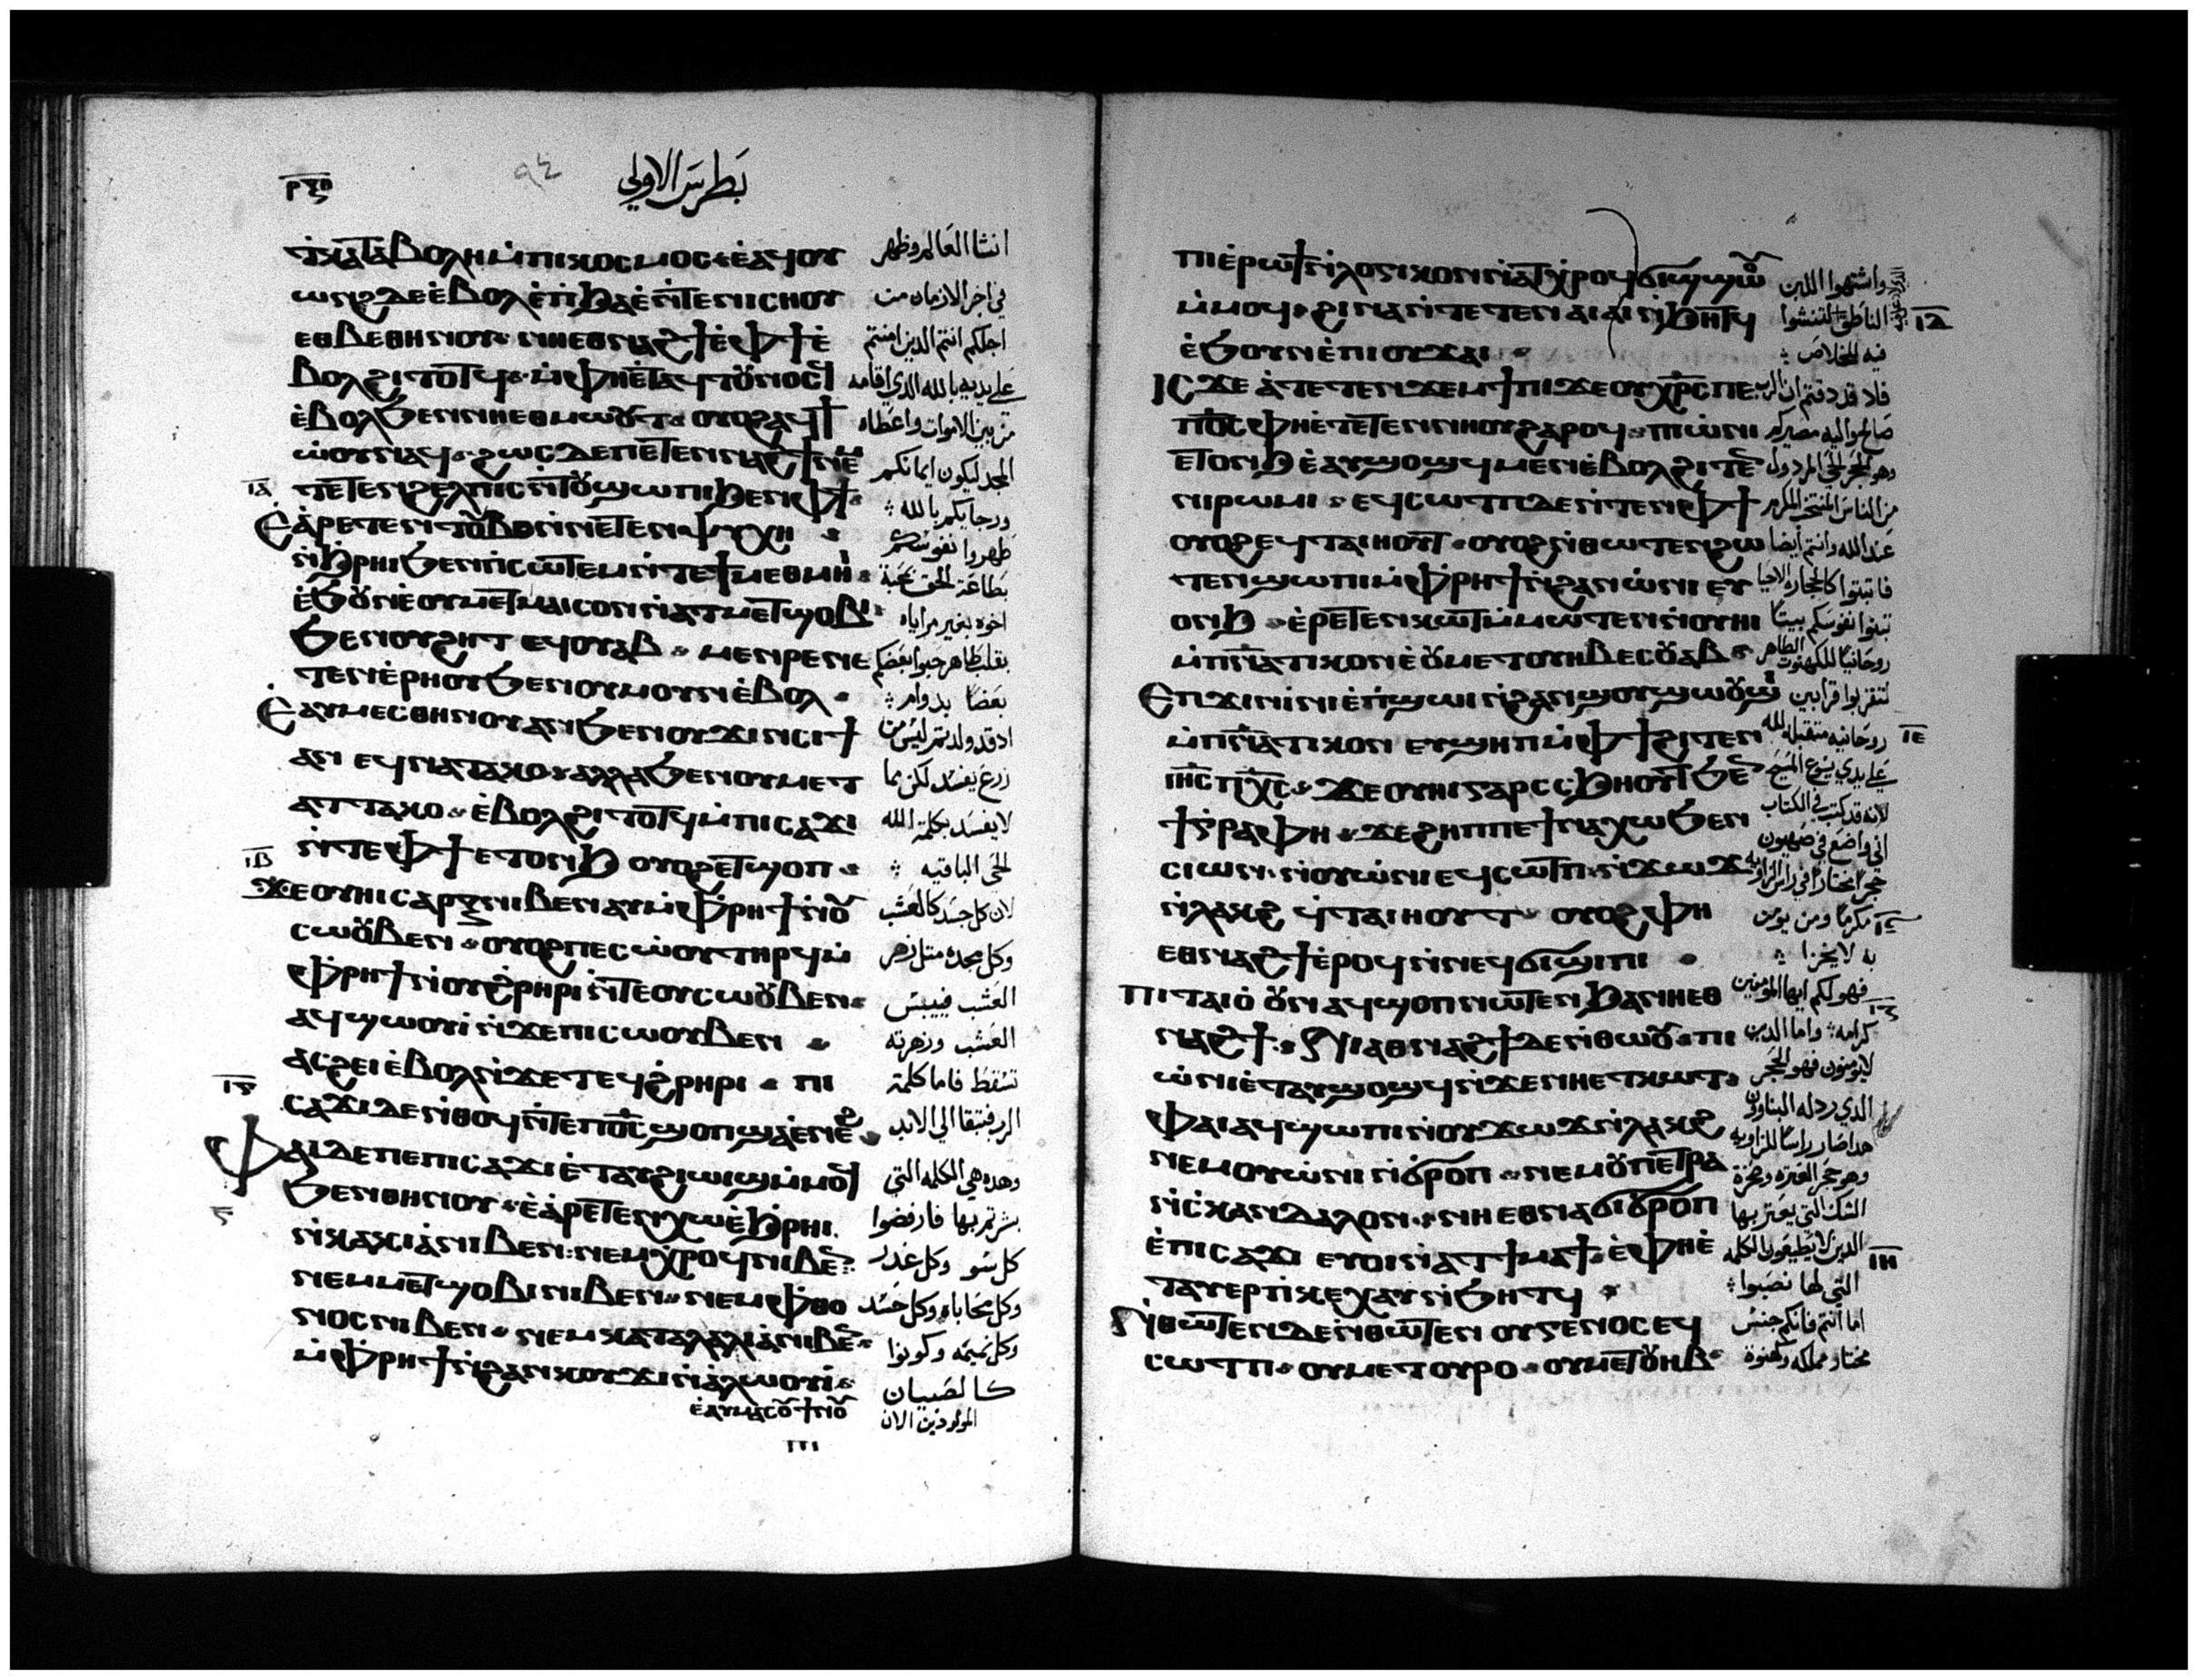 ⲣ̅ⲝ̅ⲏ̅
٩٤
بَطرس الاولي
ⲛ̀ⲕⲁⲧⲁⲃⲟⲗⲏ ⲙ̀ⲡⲓⲕⲟⲥⲙⲟⲥ ⲉ̀ⲁϥⲟⲩ
ⲱⲛϩ ⲇⲉ ⲉ̀ⲃⲟⲗ ⲉ̀ⲡ̀ϧⲁⲉ̀ ⲛ̀ⲧⲉ ⲛⲓⲥⲏⲟⲩ
ⲉⲑⲃⲉ ⲑⲏⲛⲟⲩ ⲛⲏ ⲉⲑⲛⲁϩϯ ⲉ̀ⲫϯ ⲉ̀
ⲃⲟⲗ ϩⲓⲧⲟⲧϥ ⲙ̀ⲫⲏ ⲉ̀ⲧⲁϥⲧⲟⲩⲛⲟⲥϥ
ⲉ̀ⲃⲟⲗ ϧⲉⲛ ⲛⲏ ⲉⲑⲙⲱⲟⲩⲧ ⲟⲩⲟϩ ⲁϥϯ
ⲱ̀ⲟⲩ ⲛⲁϥ ϩⲱⲥⲇⲉ ⲡⲉⲧⲉⲛⲛⲁϩϯ ⲛⲉⲙ
ⲓ̅ⲁ̅
ⲧⲉⲧⲉⲛϩⲉⲗⲡⲓⲥ ⲛ̀ⲧⲟⲩϣⲱⲡⲓ ϧⲉⲛ ⲫϯ
Ⲉⲁ̀ⲣⲉⲧⲉⲛⲧⲟⲩⲃⲟ ⲛ̀ⲛⲉⲧⲉⲛⲯⲩⲭⲏ
ⲛ̀ϧⲣⲏⲓ ϧⲉⲛ ⲡ̀ⲥⲱⲧⲉⲙ ⲛ̀ⲧⲉ ϯⲙⲉⲑⲙⲏⲓ
ⲉ̀ϧⲟⲩⲛ ⲉ̀ⲟⲩⲙⲉⲧⲙⲁⲓⲥⲟⲛ ⲛ̀ⲁⲧⲙⲉⲧϣⲟⲃⲓ
ϧⲉⲛ ⲟⲩϩⲏⲧ ⲉϥⲟⲩⲁⲃ ⲙⲉⲛⲣⲉ ⲛⲉ
ⲧⲉⲛⲉ̀ⲣⲏⲟⲩ ϧⲉⲛ ⲟⲩⲙⲟⲩⲛ ⲉ̀ⲃⲟⲗ
Ⲉⲁⲩⲙⲉⲥ ⲑⲏⲛⲟⲩ ⲁⲛ ϧⲉⲛ ⲟⲩϫⲓⲛⲥⲓϯ
ⲁⲛ ⲉϥⲛⲁⲧⲁⲕⲟ ⲁⲗⲗⲁ ϧⲉⲛ ⲟⲩⲙⲉⲧ
ⲁⲧⲧⲁⲕⲟ ⲉ̀ⲃⲟⲗ ϩⲓⲧⲟⲧϥ ⲙ̀ⲡⲓⲥⲁϫⲓ
ⲛ̀ⲧⲉ ⲫϯ ⲉⲧⲟⲛϧ ⲟⲩⲟϩ ⲉⲧϣⲟⲡ
ⲓ̅ⲃ̅
Ϫⲉ ⲟⲩⲏⲓ ⲥⲁⲣⲝ ⲛⲓⲃⲉⲛ ⲁⲩⲙ̀ⲫⲣⲏϯ ⲛ̀ⲟⲩ
ⲥⲱⲟⲩⲃⲉⲛ ⲟⲩⲟϩ ⲡⲉⲥⲱ̀ⲟⲩ ⲧⲏⲣϥ ⲙ̀
ⲫⲣⲏϯ ⲛ̀ⲟⲩϩⲣⲏⲣⲓ ⲛ̀ⲧⲉ ⲟⲩⲥⲱⲟⲩⲃⲉⲛ
ⲁϥϣⲱⲟⲩⲓ̀ ⲛ̀ϫⲉ ⲡⲓⲥⲱⲟⲩⲃⲉⲛ
ⲁⲥϩⲉⲓ ⲉ̀ⲃⲟⲗ ⲛ̀ϫⲉ ⲧⲉϥϩⲣⲏⲣⲓ ⲡⲓ
ⲓ̅ⲅ̅
ⲥⲁϫⲓ ⲇⲉ ⲛ̀ⲑⲟϥ ⲛ̀ⲧⲉ ⲡⲟ̅ⲥ̅ ϣⲟⲡ ϣⲁ ⲉ̀ⲛⲉϩ
Ⲫⲁⲓ ⲇⲉ ⲡⲉ ⲡⲓⲥⲁϫⲓ ⲉ̀ⲧⲁⲩϩⲓⲱⲓϣ ⲙ̀ⲙⲟϥ
ϧⲉⲛ ⲑⲏⲛⲟⲩ ⲉ̀ⲁ̀ⲣⲉⲧⲉⲛⲭⲱ ⲉ̀ϧⲣⲏⲓ
ⲛ̀ⲕⲁⲕⲓⲁ̀ ⲛⲓⲃⲉⲛ ⲛⲉⲙ ⲭⲣⲟϥ ⲛⲓⲃⲉⲛ
ⲛⲉⲙ ⲙⲉⲧϣⲟⲃⲓ ⲛⲓⲃⲉⲛ ⲛⲉⲙ ⲫⲑⲟ
ⲛⲟⲥ ⲛⲓⲃⲉⲛ ⲛⲉⲙ ⲕⲁⲧⲁⲗⲁⲗⲓⲁ̀ ⲛⲓⲃⲉⲛ
ⲙ̀ⲫⲣⲏϯ ⲛ̀ϩⲁⲛⲕⲟⲩϫⲓ ⲛ̀ⲁ̀ⲗⲱⲟⲩⲓ̀
ⲉ̀ⲁⲩⲙⲁⲥⲟⲩ ϯⲛⲟⲩ
ⲡⲓ
انشا العالم وظهر
في اخر الازمان من
اجلكم انتم الدين امنتم
علي يديه بالله الدي اقامه
من بين الاموات واعطاه
المجد ليكون ايمانكم
ورجايكم بالله
طهروا نفوسكم
بطاعة الحق بمحبة
اخوه بغير مراياه
بقلب طاهر حبوا بعضكم
بعضا بدوام
اد قد ولدتم ليس من
زرع يفسد لكن بما
لا يفسد بكلمة الله
الحي الباقيه
لان كل جسد كالعشب
وكل مجده متل زهر
العشب فييبس
العشب وزهرته
تسقط فاما كلمة
الرب فتبقا الي الابد
وهده هي الكلمه التي
بشرتم بها فارفضوا
كل سو وكل غدر
وكل محاباه وكل حسد
وكل نميمه وكونوا
كالصبيان
المولودين الان
ⲡⲓⲉ̀ⲣⲱϯ ⲛ̀ⲗⲟⲅⲓⲕⲟⲛ ⲛ̀ⲁⲧⲭⲣⲟϥ ϭⲓϣϣⲱⲟⲩ
ⲓ̅ⲇ̅
ⲙ̀ⲙⲟϥ ϩⲓⲛⲁ ⲛ̀ⲧⲉⲧⲉⲛⲁⲓⲁⲓ ⲛ̀ϧⲏⲧϥ
ⲉ̀ϧⲟⲩⲛ ⲉ̀ⲡⲓⲟⲩϫⲁⲓ
Ⲓⲥϫⲉ ⲁ̀ⲧⲉⲧⲉⲛϫⲉⲙϯⲡⲓ ϫⲉ ⲟⲩⲭⲣⲥ ⲡⲉ
ⲡⲟ̅ⲥ̅ ⲫⲏ ⲉ̀ⲧⲉⲧⲉⲛⲛⲏⲟⲩ ϩⲁⲣⲟϥ ⲡⲓⲱ̀ⲛⲓ
ⲉⲧⲟⲛϧ ⲉ̀ⲁⲩϣⲟϣϥ ⲙⲉⲛ ⲉ̀ⲃⲟⲗ ϩⲓⲧⲉⲛ
ⲛⲓⲣⲱⲙⲓ ⲉϥⲥⲱⲧⲡ ⲇⲉ ⲛ̀ⲧⲉⲛ ⲫϯ
ⲟⲩⲟϩ ⲉϥⲧⲁⲓⲏⲟⲩⲧ ⲟⲩⲟϩ ⲛ̀ⲑⲱⲧⲉⲛ ϩⲱ
ⲧⲉⲛ ϣⲱⲡⲓ ⲙ̀ⲫⲣⲏϯ ⲛ̀ϩⲁⲛⲱ̀ⲛⲓ ⲉⲩ
ⲟⲛϧ ⲉ̀ⲣⲉⲧⲉⲛⲕⲱⲧ ⲙ̀ⲙⲱⲧⲉⲛ ⲛ̀ⲟⲩⲏⲓ
ⲙ̀ⲡⲛ̅ⲁ̅ⲧⲓⲕⲟⲛ ⲉ̀ⲟⲩⲙⲉⲧⲟⲩⲏⲃ ⲉⲥⲟⲩⲁⲃ
Ⲉⲡϫⲓⲛⲓ̀ⲛⲓ ⲉ̀ⲡ̀ϣⲱⲓ ⲛ̀ϩⲁⲛϣⲟⲩϣⲱⲟⲩϣⲓ
ⲓ̅ⲉ̅
ⲙ̀ⲡⲛ̅ⲁ̅ⲧⲓⲕⲟⲛ ⲉⲩϣⲏⲡ ⲙ̀ⲫϯ ϩⲓⲧⲉⲛ
ⲓⲏ̅ⲥ̅ ⲡⲭ̅ⲥ̅ ϫⲉ ⲟⲩⲏⲓ ⲅⲁⲣ ⲥⲥϧⲏⲟⲩⲧ ϧⲉⲛ
ϯⲅⲣⲁⲫⲏ ϫⲉ ϩⲏⲡⲡⲉ ϯⲛⲁⲭⲱ ϧⲉⲛ
ⲥⲓⲱⲛ ⲛ̀ⲟⲩⲱ̀ⲛⲓ ⲉϥⲥⲱⲧⲡ ⲛ̀ϫⲱϫ
ⲛ̀ⲗⲁⲕϩ ϥⲧⲁⲓⲏⲟⲩⲧ ⲟⲩⲟϩ ⲫⲏ
ⲉⲑⲛⲁϩϯ ⲉ̀ⲣⲟϥ ⲛ̀ⲛⲉϥϭⲓϣⲓⲡⲓ
Ⲡⲓⲧⲁⲓⲟ̀ ⲟⲩⲛ ⲁϥϣⲟⲡ ⲛⲱⲧⲉⲛ ϧⲁ ⲛⲏ ⲉⲑ
ⲛⲁϩϯ Ⲛⲓⲁⲑⲛⲁϩϯ ⲇⲉ ⲛ̀ⲑⲱⲟⲩ ⲡⲓ
ⲱ̀ⲛⲓ ⲉ̀ⲧⲁⲩϣⲟϣϥ ⲛ̀ϫⲉ ⲛⲏ ⲉⲧⲕⲱⲧ
Ⲫⲁⲓ ⲁϥϣⲱⲡⲓ ⲛ̀ⲟⲩϫⲱϫ ⲛ̀ⲗⲁⲕϩ
ⲛⲉⲙ ⲟⲩⲱ̀ⲛⲓ ⲛ̀ϭⲣⲟⲡ ⲛⲉⲙ ⲟⲩⲡⲉⲧⲣⲁ
ⲛ̀ⲥⲕⲁⲛⲇⲁⲗⲟⲛ ⲛⲏ ⲉⲑⲛⲁϭⲓϭⲣⲟⲡ
ⲓ̅ⲏ̅
ⲉ̀ⲡⲓⲥⲁϫⲓ ⲉⲩⲟⲓ ⲛ̀ⲁⲧϯⲙⲁϯ ⲉ̀ⲫⲏ ⲉ̀
ⲧⲁⲩⲉⲣⲡⲕⲉⲭⲁⲩ ⲛ̀ϧⲏⲧϥ
Ⲛ̀ⲑⲱⲧⲉⲛ ⲇⲉ ⲛ̀ⲑⲱⲧⲉⲛ ⲟⲩⲅⲉⲛⲟⲥ ⲉϥ
ⲥⲱⲧⲡ ⲟⲩⲙⲉⲧⲟⲩⲣⲟ ⲟⲩⲙⲉⲧⲟⲩⲏⲃ
واشتهوا اللبن
الناطق لتنشوا
فيه للخلاص
فلا قد دقتم ان الرب
صالح اليه مصيركم
وهو الحجر الحي المردول
من الناس المنتخب المكرم
عند الله وانتم ايضا
فاتبتوا كالحجارة الاحيا
تبنوا نفوسكم بيتا
روحانيا للكهنوت الطاهر
لتقربوا قرابين
روحانيه متقبله لله
علي يدي يسوع المسيح
لانه قد كتب في الكتاب
اني واضع في صهيون
حجرا مختارا في راس الزاويه
مكرما ومن يومن
به لا يخزا
فهو لكم ايها المومنين
كرامه واما الدين
لا يومنون فهو الحجر
الدي ردله البناوون
هدا صار راسا للزاويه
وهو حجر العتره وصخرة
الشك التي يعتر بها
الدين لا يطيعون الكلمه
التي لها نصبوا
اما انتم فانكم جنس
مختار مملكه وكهنوة